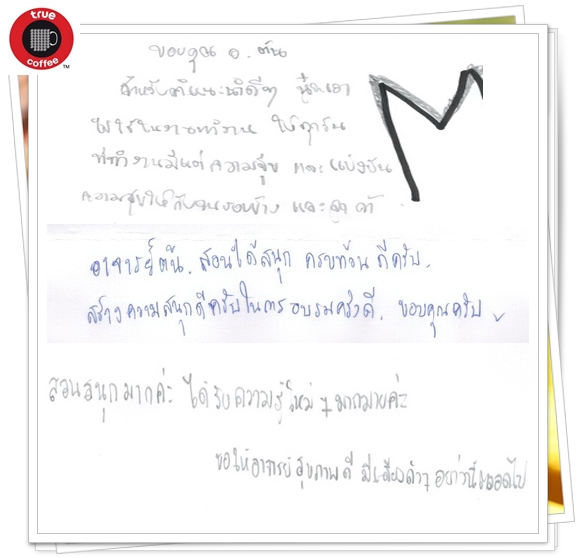 true
coffee
TM
ขอบคุณ อ. ต้น
สำหรับคำแนะนำดีๆ
ไปใช้ในการทำงาน ให้ทุกวัน
ที่ทำงานมีแต่ความสุข และ แบ่งปัน
ความสุขให้กับคนรอบข้าง และลูกค้า
อาจารย์ต้น. สอนได้สนุก ครบถ้วน ดีครับ.
สร้างความสนุกดีครับในการอบรมครั้งนี้. ขอบคุณครับ
สอนสนุกมากค่ะ ได้รับความรู้ใหม่ ๆ มากมายค่ะ
ขอให้อาจารย์สุขภาพดี มีเสียงดังๆ อย่างนี้ตลอดไป